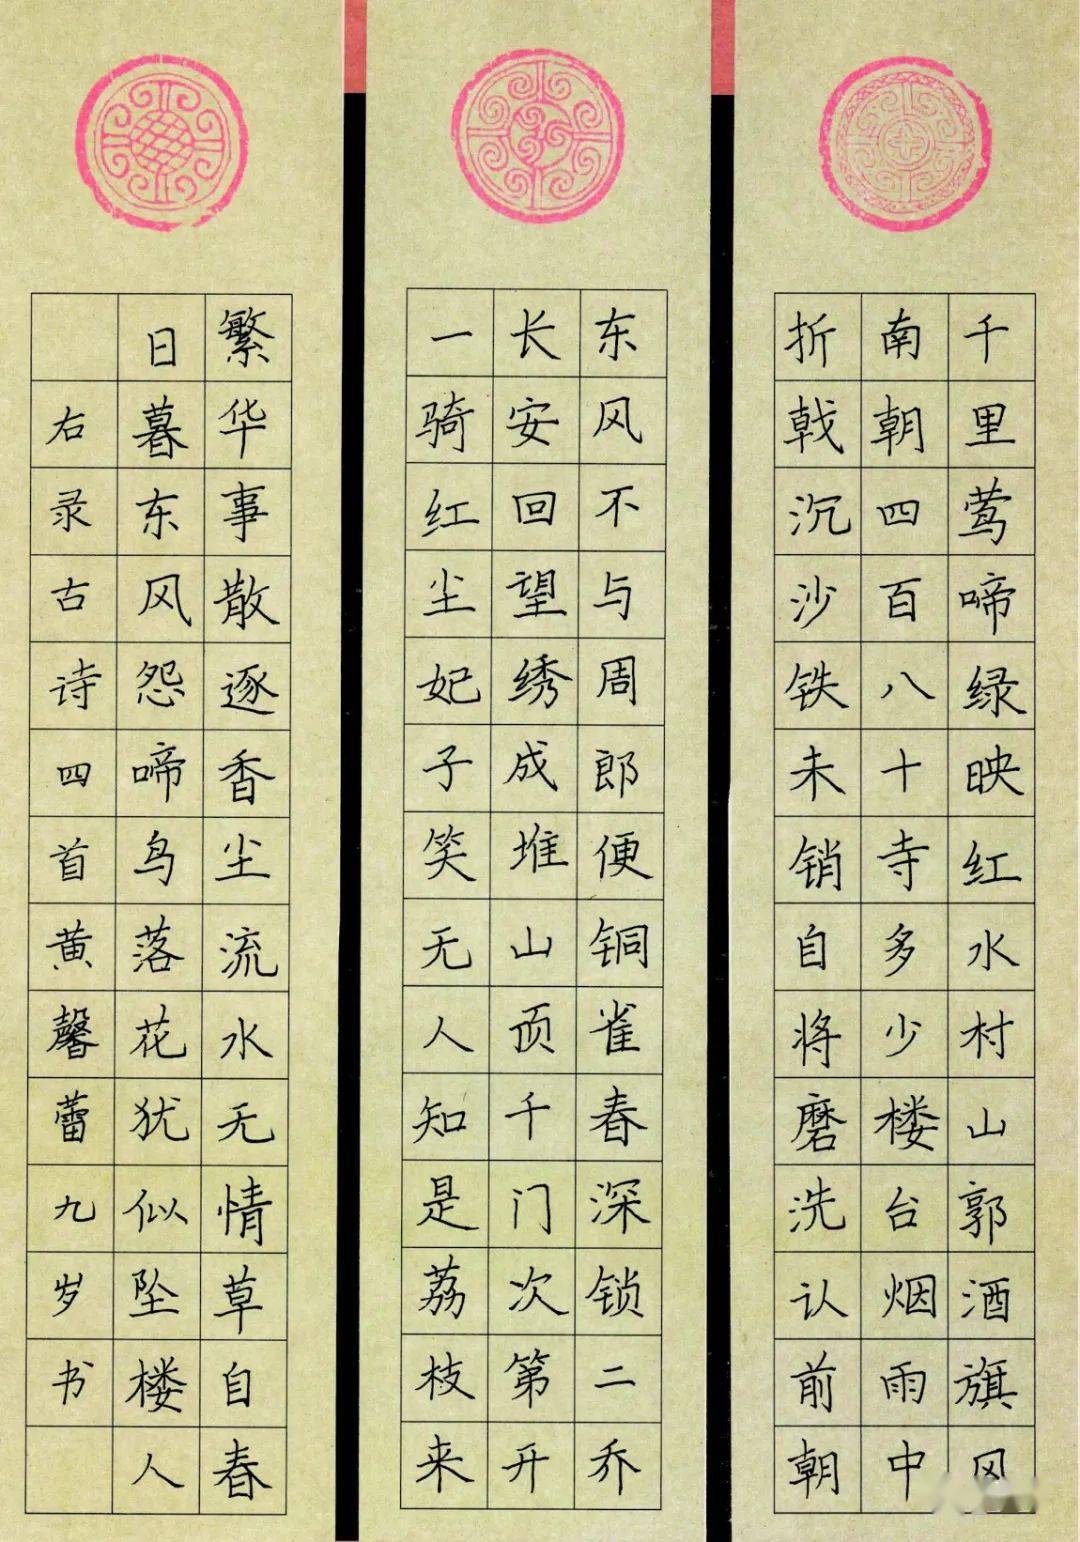 千里莺啼绿映红水村山郭酒旗风
南朝四百八十寺多少楼台烟雨中
折戟沉沙铁未销自将磨洗认前朝
东风不与周郎便铜雀春深锁二乔
长安回望绣成堆山顶千门次第开
一骑红尘妃子笑无人知是荔枝来
繁华事散逐香尘流水无情草自春
日暮东风怨啼鸟落花犹似坠楼人
右录古诗四首黄馨蕾九岁书